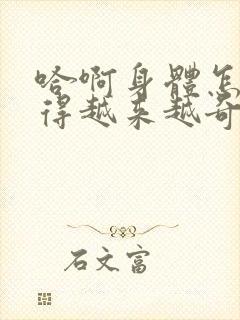 哈啊身體怎
得越来越奇
石文富